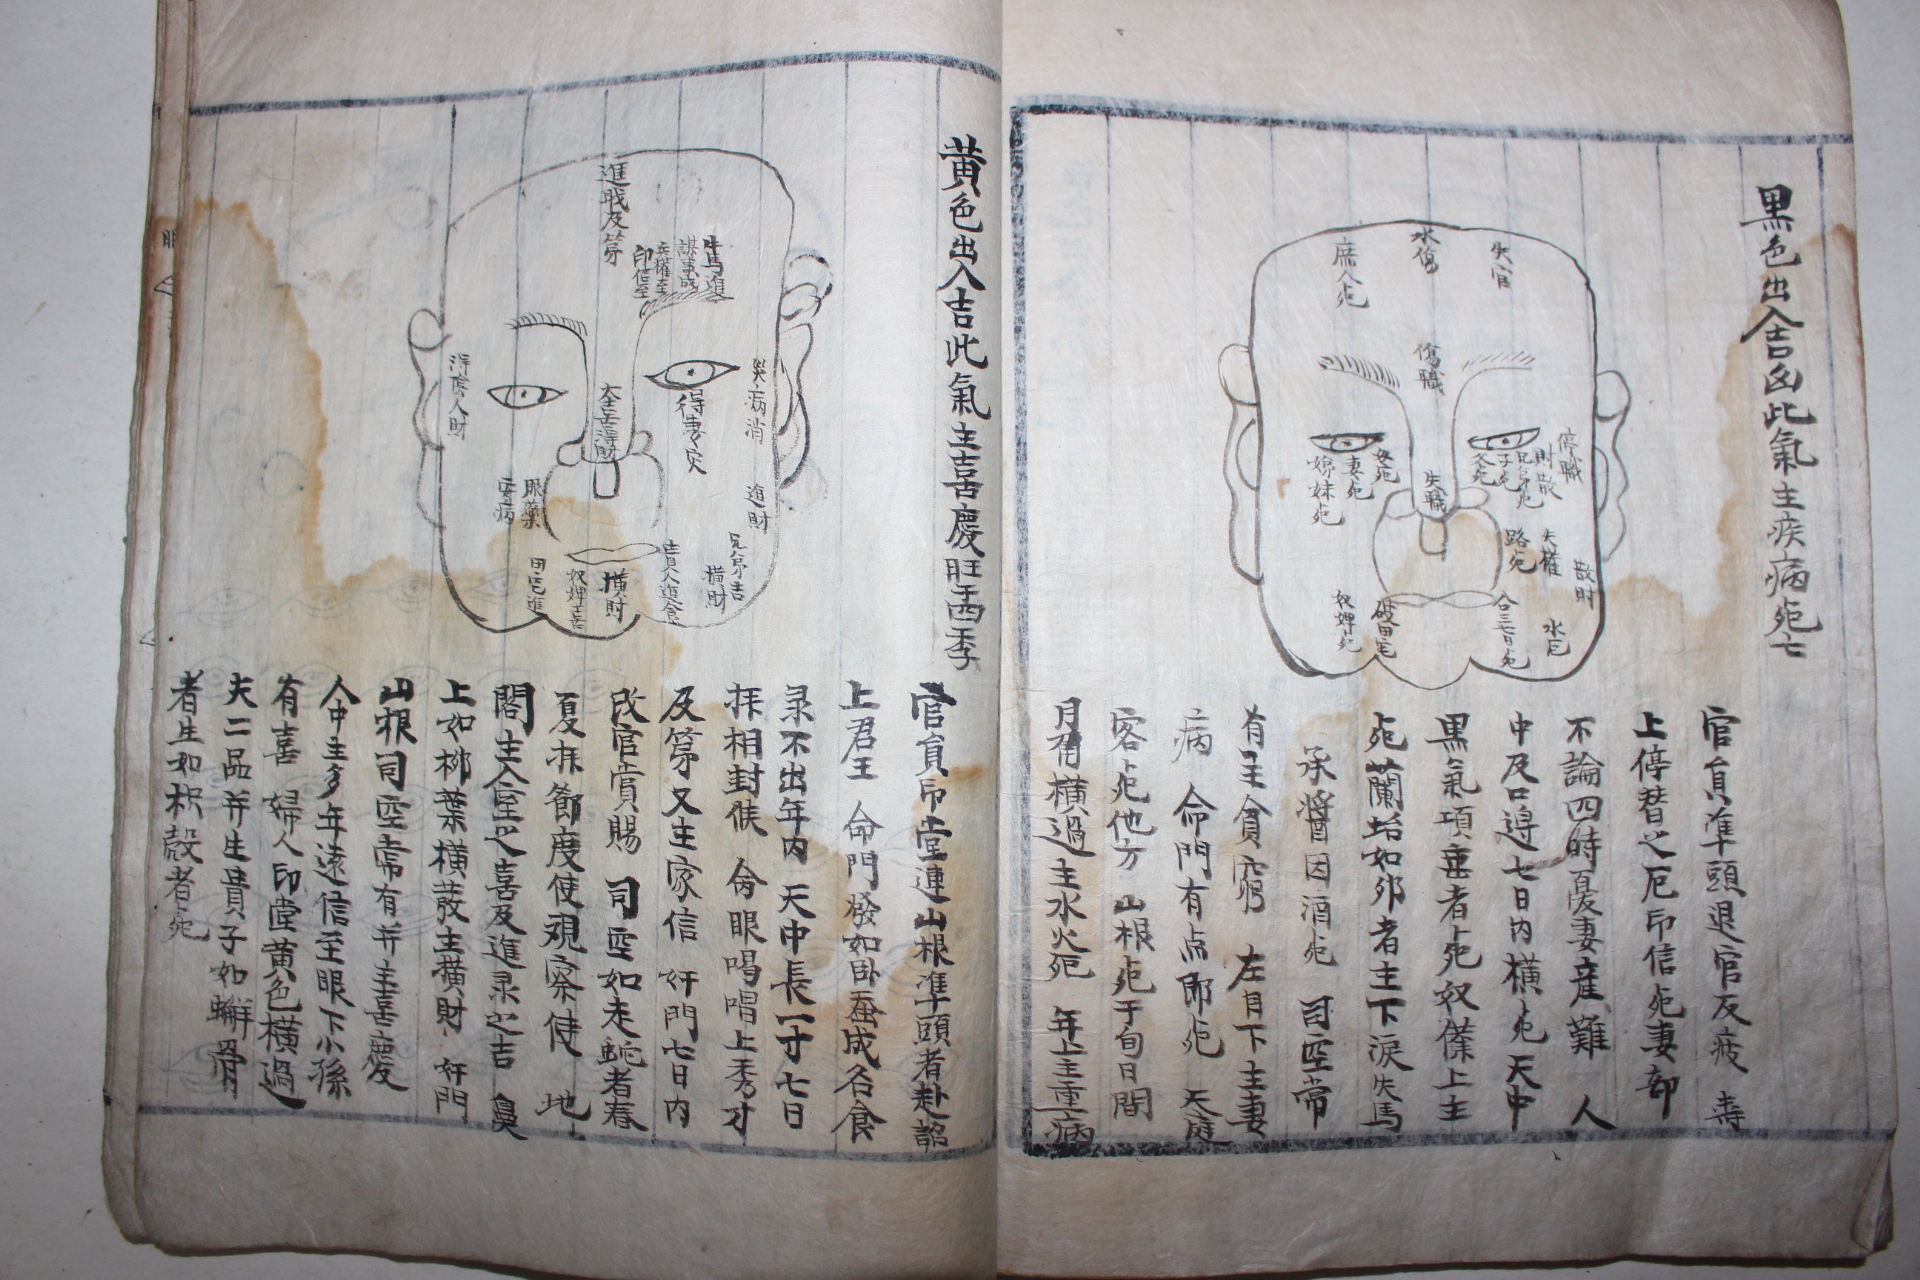 黑色出入吉凶此氣主疾病死亡
失官
水傷
庶人死
傷職
停職
財散
兄弟死
子死
父死
奴死
妻死
姊妹死
失職
失權
路死
散財
水厄
合三七日死
破田宅
奴婢死
官員准頭退官反疲 壽
上停替之厄印信死妻部
不論四時憂妻産難 人
中及口過七日內橫死天中
黑氣項垂者死奴僕上主
死蘭坮如卵者主下淚失馬
承漿因酒死 司空常
有主貧窮 左目下主妻
病 命門有点卽死 天庭
客死他方 山根死于旬日間
月有橫過主水火死 年上主重病
黃色出入吉此氣主喜慶旺四季
進職及第
牛馬進
謀事成
兵權至
印信至
得陰人財
得妻
災病消
進財
兄弟吉
橫財
貴人進食
橫財
奴婢喜
田宅進
服藥
安病
官員印堂連山根準頭者赴詔
上君王 命門發如臥蚕成名食
录不出年內 天中長一寸七日
拝相封侯 魚眼喝唱上秀才
及第又主家信 奸門七日內
改官賞賜 司空如走蛇者春
夏拝節度使視察使 地
閣主入室之喜及進录之吉 鼻
上如柳葉橫散主橫財 奸門
山根司空常有幷主喜慶
人中主多年遠信至眼下小孫
有喜 婦人印堂黃色橫過
夫二品幷生貴子如蟬骨
者生如枳殼者死